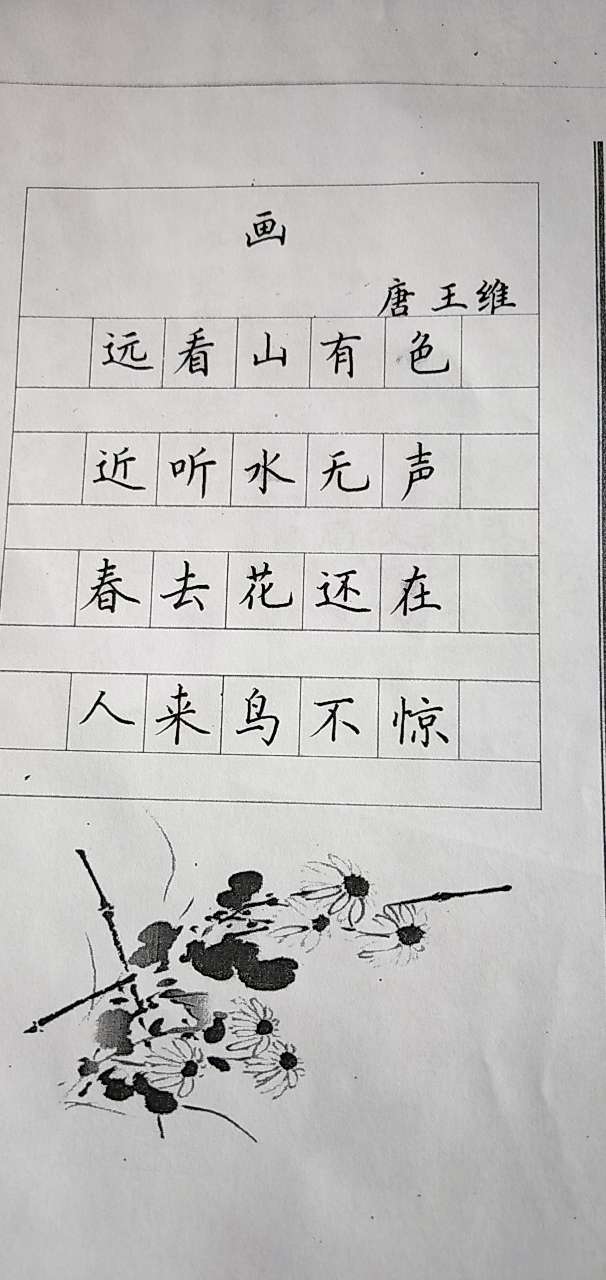 画
唐 王维
远看山有色
近听水无声
春去花还在
人来鸟不惊